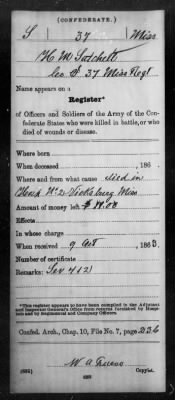 (CONFEDERATE.)
S 37 Miss
H M Satchett
Co. G 37 Miss Regt
Name appears on a
Register*
of Officers and Soldiers of the Army of the Con-
federate States who were killed in battle, or who
died of wounds or disease.
Where born
When deceased , 186
Where and from what cause died in
Hosp No 2 Vicksburg Miss
Amount of money left $
Effects
In whose charge
When received 9 Oct , 1863.
Number of certificate
Remarks:
*This register appears to have been compiled in the Adjutant
and Inspector General's Office from returns furnished by Hospi-
tals and by Regimental and Company Officers.
Confed. Arch., Chap. 10, File No. 7, page 236
Copyist.